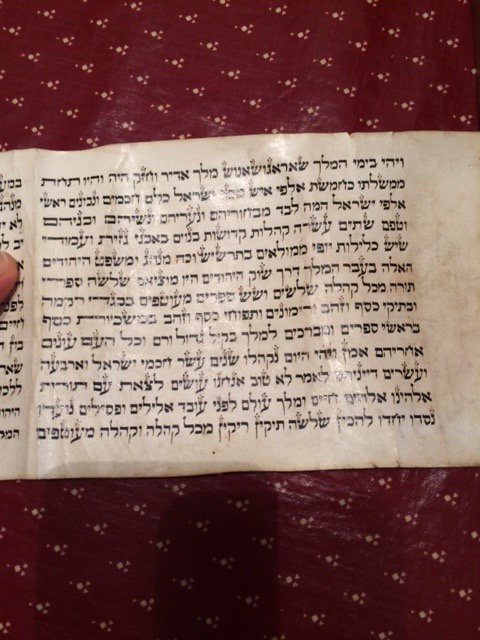 ויהי בימי המלך שאראגושאנוש מלך אדיר וחזק היה והיו תחת
ממשלתו כחמשת אלפי איש מבני ישראל כלם חכמים ונבונים ראשי
אלפי ישראל המה לבד מבחוריהם ונעריהם ונשיהם ובניהם
וטפם שתים עשרה קהלות קדושות בנוים באבני גזית ועמודי
שיש כלילות יופי ממולאים בתרשיש וכה מנהג ומשפט היהודים
האלה בעבר המלך דרך שוק היהודים היו מוציאים שלשה ספרי
תורה מכל קהלה שלשים ושש ספרים מעוטפים בבגדי רקמה
ובתיקי כסף וזהב רימונים ותפוחי כסף וזהב במשכיות כסף
בראשי ספרים ומברכים למלך בקול גדול ורם וכל העם עונים
אחריהם אמן ויהי היום נקהלו שנים עשר חכמי ישראל וארבעה
ועשרים דיינים לאמר לא טוב אנחנו עושים לצאת עם תורת
אלהינו אלהים חיים ומלך עולם לפני עובד אלילים ופסילים נועדו
נסדו יחדו להכין שלשה תיקין ריקין מכל קהלה וקהלה מעוטפים